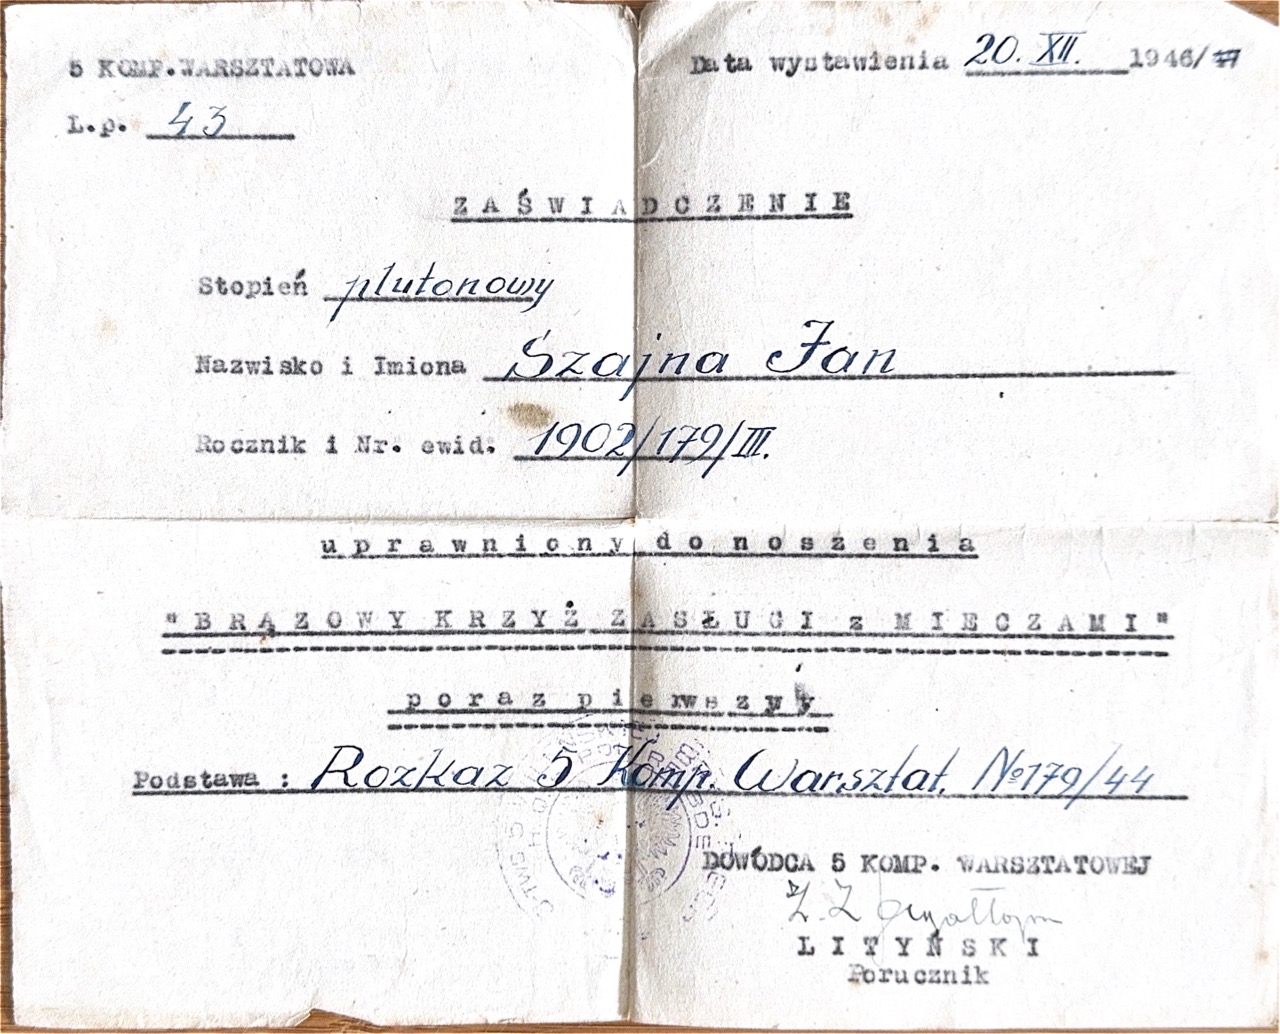 5 KOMP.WARSZTATOWA
Data wystawienia 20. XII. 1946/
L.p. 43
ZAŚWIADCZENIE
Stopień plutonowy
Nazwisko i Imiona Szajna Jan
Rocznik i Nr. ewid. 1902/179/III.
uprawniony do noszenia
"BRĄZOWY KRZYŻ ZASŁUGI z MIECZAMI"
poraz pierwszy
Podstawa : Rozkaz 5 Komp. Warsztat. № 179/44
DOWÓDCA 5 KOMP. WARSZTATOWEJ
LITYŃSKI
Porucznik